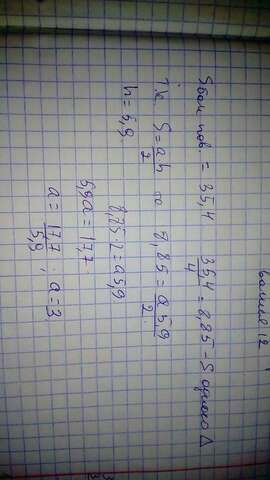 S бок пов. = 35,4   35,4/4 = 8,85 - S одного Δ
Т.к. S = ah/2 то 8,85 = a5,9/2
h = 5,9.
8,85 · 2 = a5,9
5,9a = 17,7
a = 17,7/5,9 ; a = 3